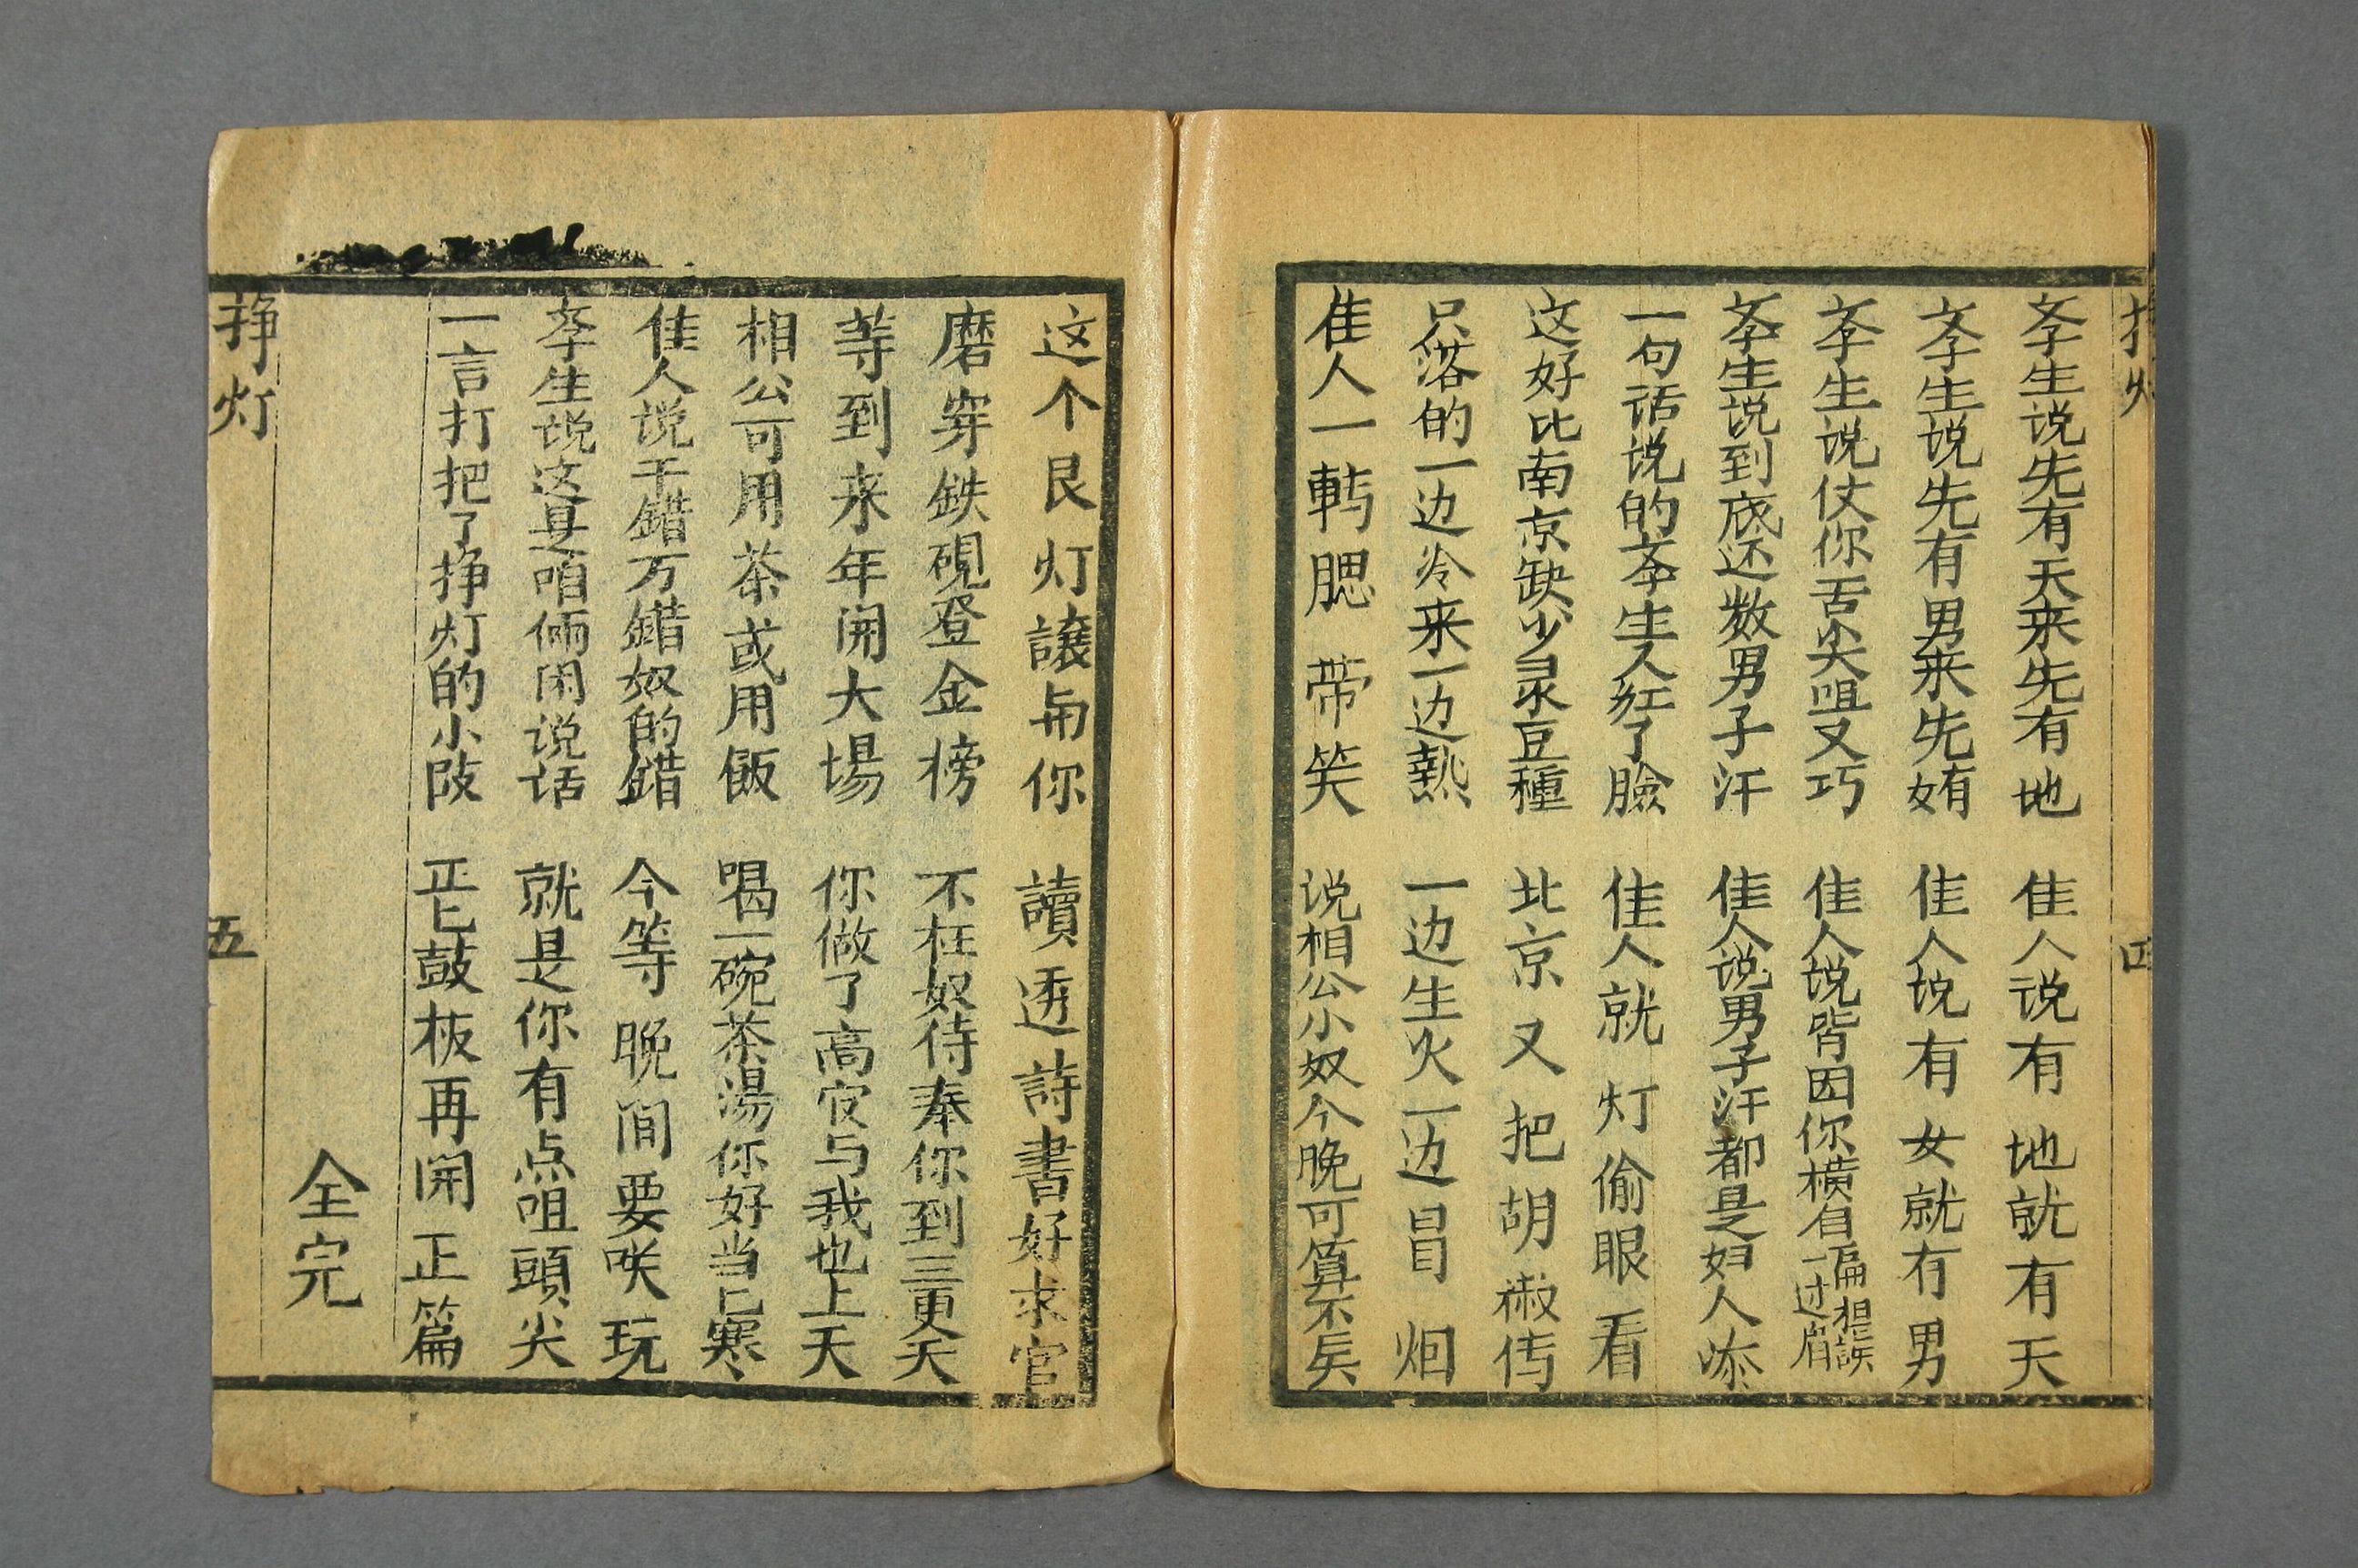 挣灯 四
斈生说先有天来先有地 佳人说有地就有天
斈生说先有男来先姷 佳人说有女就有男
斈生说仗你舌尖咀又巧 佳人说皆因你横自偏想誤一过眉
斈生说到底还数男子汗 佳人说男子汗都是妇人添
一句话说的斈生人红了臉 佳人就灯偷眼看
这好比南京缺少灵豆種 北京又把胡椒传
只落的一边冷来一边熱 一边生火一边冒烟
佳人一転腮带笑 说相公小奴今晚可算不矣
这个艮灯讓与你 讀透詩書好求官
磨穿鉄硯登金榜 不枉奴侍奉你到三更天
等到来年開大場 你做了高官与我也上天
相公可用茶或用飯 喝一碗茶湯你好当匕寒
佳人说千錯万錯奴的錯 今等晚间要咲玩
斈生说这是咱俩闲说话 就是你有点咀頭尖
一言打把了挣灯的小段 正匕鼓板再開正篇
全完
挣灯 五